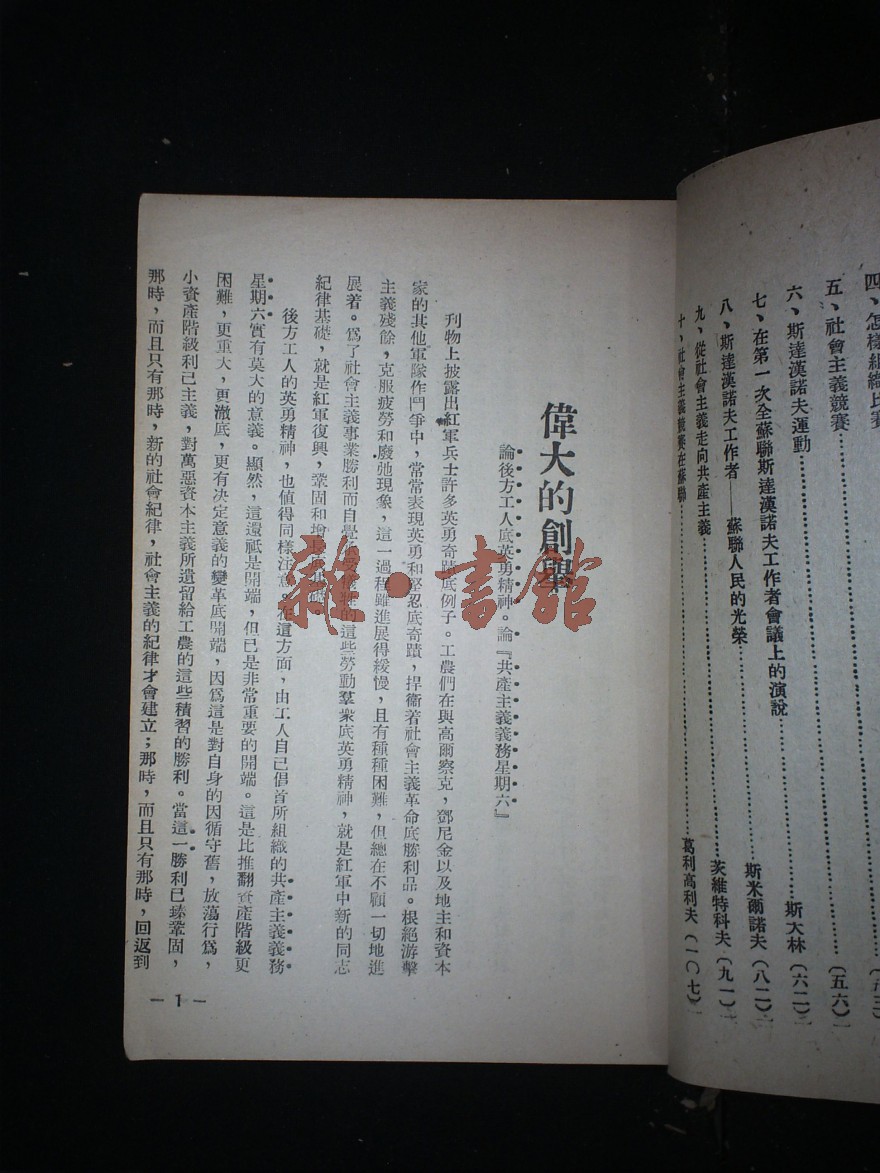 四、怎樣組織比賽
五、社會主義競賽……（五六）
六、斯達漢諾夫運動……斯大林（六二）
七、在第一次全蘇聯斯達漢諾夫工作者會議上的演說……斯米爾諾夫（八二）
八、斯達漢諾夫工作者——蘇聯人民的光榮……茨維特科夫（九一）
九、從社會主義走向共產主義……葛利高利夫（一〇七）
十、社會主義競賽在蘇聯……
偉大的創舉
論後方工人底英勇精神。論『共產主義義務星期六』
刊物上披露出紅軍兵士許多英勇奇蹟底例子。工農們在與高爾察克，鄧尼金以及地主和資本
家的其他軍隊作鬥爭中，常常表現英勇和堅忍底奇蹟，捍衞着社會主義革命底勝利品。根絕游擊
主義殘餘，克服疲勞和廢弛現象，這一過程雖進展得緩慢，且有種種困難，但總在不顧一切地進
展着。爲了社會主義事業勝利而自覺的這些勞動羣衆底英勇精神，就是紅軍中新的同志
紀律基礎，就是紅軍復興，鞏固和增長底基礎。
後方工人的英勇精神，也值得同樣注意。在這方面，由工人自己倡首所組織的共產主義義務
星期六實有莫大的意義。顯然，這還祇是開端，但已是非常重要的開端。這是比推翻資產階級更
困難，更重大，更澈底，更有决定意義的變革底開端，因爲這是對自身的因循守舊，放蕩行爲，
小資產階級利己主義，對萬惡資本主義所遺留給工農的這些積習的勝利。當這一勝利已臻鞏固，
那時，而且只有那時，新的社會紀律，社會主義的紀律才會建立；那時，而且只有那時，回返到
－1－
雜·書館